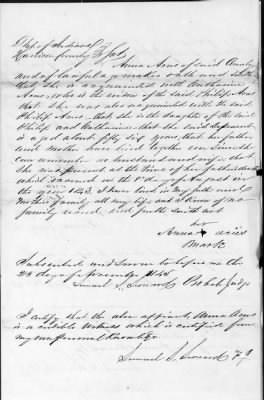 State of Indiana
Harrison County Sct
Anna Aens of said County
and of lawful age makes oath and saith
that she is acquainted with Catharine
Aens, who is the widow of the said Philip Aens
that she was also acquainted with the said
Philip Aens, that she is the daughter of the said
Philip and Catharine that the said deponent
is aged about fifty six years, that her father
and mother have lived together ever since she
can remember as husband and wife, that
she was present at the time of her father's death
which occurred on the 8th day of August in
the year 1843. I have lived in my father and
Mother's family all my life and I know of no
family record and further saith not
her
Anna + Aens
Mark
Subscribed and sworn to before me this
28 day of November 1845
Samuel J. Probate Judge
I certify that the above affiant, Anna Aens
is a credible witness which is certified from
my own personal knowledge
Samuel J.